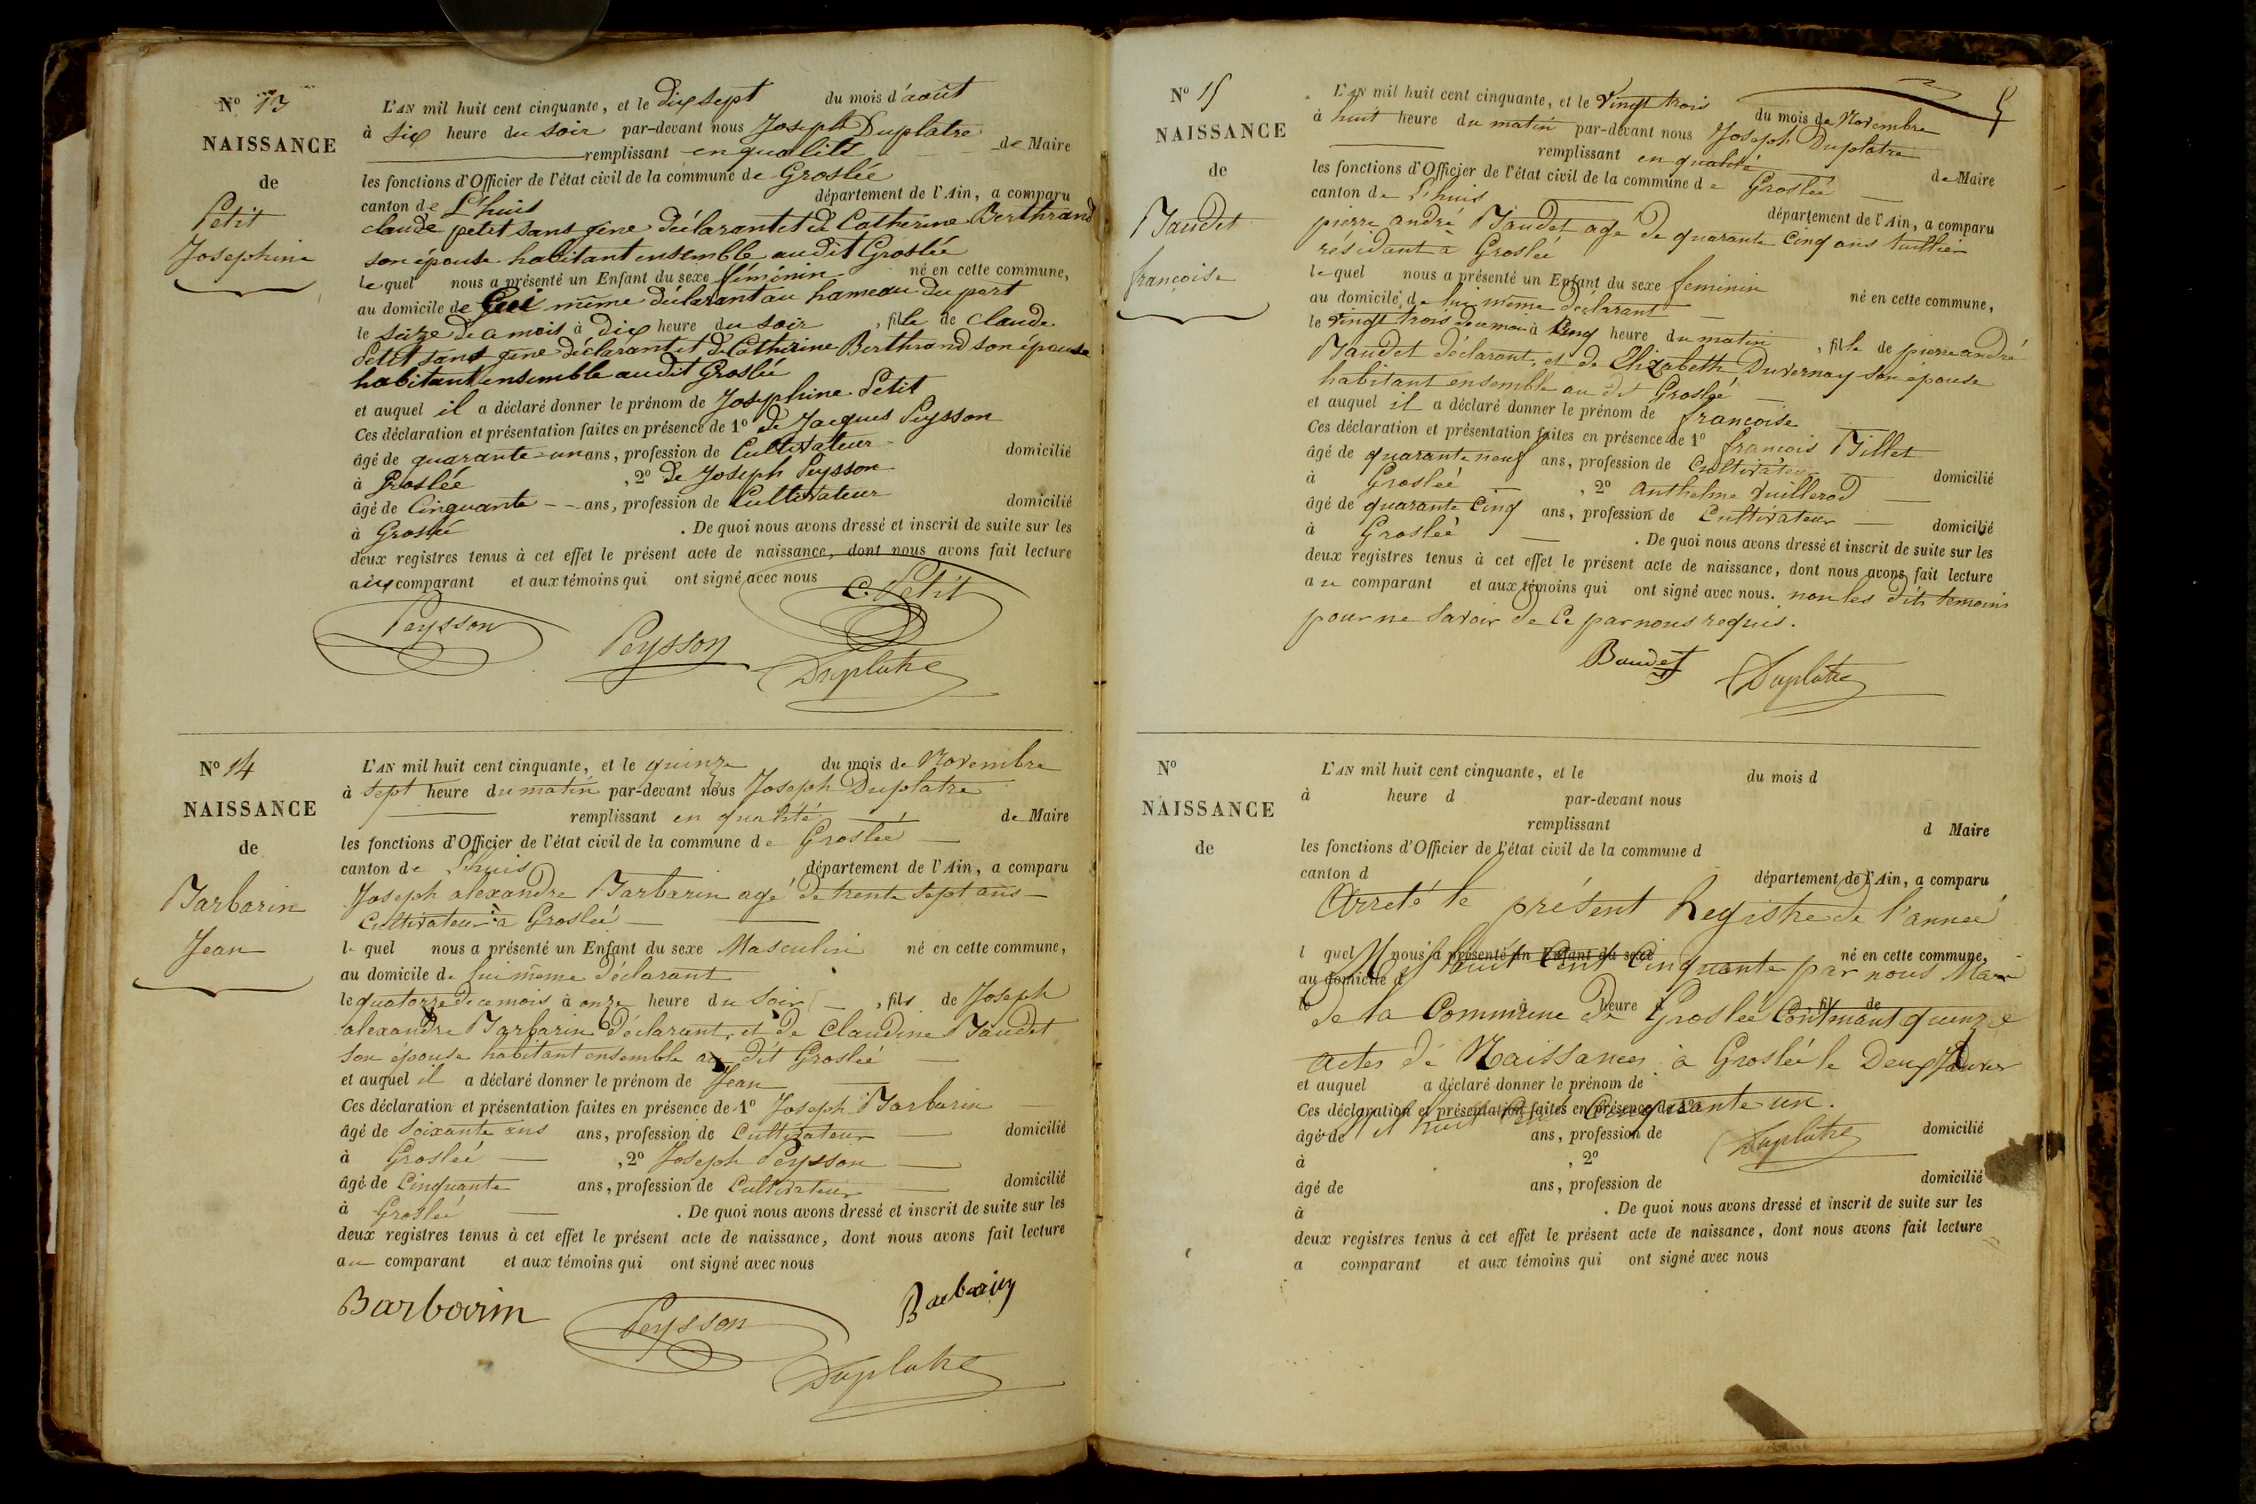 N° 13
NAISSANCE
de
Petit
Josephine
L'AN mil huit cent cinquante, et le dix sept du mois d'août
à six heure du soir par-devant nous Joseph Duplatre
remplissant en qualité de Maire
les fonctions d'Officier de l'état civil de la commune de Groslée
canton de L'huis département de l'Ain, a comparu
claude petit sans gêne déclarant et de Catherine Berthrand
son épouse habitant ensemble audit Groslée
lequel nous a présenté un Enfant du sexe féminin né en cette commune,
au domicile de lui même déclarant au hameau du port
le seize de ce mois à dix heure du soir, fille de claude
Petit sans gêne déclarant et de Catherine Berthrand son épouse
habitant ensemble audit Groslée
et auquel il a déclaré donner le prénom de Josephine Petit
Ces déclaration et présentation faites en présence de 1° de Jacques Peysson
âgé de quarante-un ans, profession de Cultivateur domicilié
à Groslée , 2° de Joseph Peysson
âgé de Cinquante -- ans, profession de Cultivateur domicilié
à Groslée . De quoi nous avons dressé et inscrit de suite sur les
deux registres tenus à cet effet le présent acte de naissance, dont nous avons fait lecture
aux comparant et aux témoins qui ont signé avec nous
C. Petit
Peysson
Peysson
Duplatre
N° 14
NAISSANCE
de
Barbarin
Jean
L'AN mil huit cent cinquante, et le quinze du mois de Novembre
à sept heure du matin par-devant nous Joseph Duplatre
remplissant en qualité de Maire
les fonctions d'Officier de l'état civil de la commune de Groslée
canton de L'huis département de l'Ain, a comparu
Joseph alexandre Barbarin agé de trente sept ans
Cultivateur à Groslée
lequel nous a présenté un Enfant du sexe Masculin né en cette commune,
au domicile de lui même déclarant
le quatorze de ce mois à onze heure du soir , fils de Joseph
alexandre Barbarin déclarant, et de Claudine Baudet
son épouse habitant ensemble au dit Groslée
et auquel il a déclaré donner le prénom de Jean
Ces déclaration et présentation faites en présence de 1° Joseph Barbarin
âgé de soixante ans ans, profession de Cultivateur domicilié
à Groslée , 2° Joseph Peysson
âgé de Cinquante ans, profession de Cultivateur domicilié
à Groslée . De quoi nous avons dressé et inscrit de suite sur les
deux registres tenus à cet effet le présent acte de naissance, dont nous avons fait lecture
au comparant et aux témoins qui ont signé avec nous
Barbarin Peysson Barbarin
Duplatre
N° 15
NAISSANCE
de
Baudet
françoise
5
L'AN mil huit cent cinquante, et le vingt trois du mois de Novembre
à huit heure du matin par-devant nous Joseph Duplatre
remplissant en qualité de Maire
les fonctions d'Officier de l'état civil de la commune de Groslée
canton de L'huis département de l'Ain, a comparu
pierre andré Baudet agé de quarante cinq ans tuillier
résidant à Groslée
lequel nous a présenté un Enfant du sexe feminin né en cette commune,
au domicile de lui même déclarant
le vingt trois de ce mois à cinq heure du matin , fille de pierre andré
Baudet déclarant, et de Elizabeth Duvernay son épouse
habitant ensemble au dit Groslée
et auquel il a déclaré donner le prénom de françoise
Ces déclaration et présentation faites en présence de 1° francois Billet
âgé de quarante neuf ans, profession de Cultivateur domicilié
à Groslée , 2° Anthelme Vuillerod
âgé de quarante Cinq ans, profession de Cultivateur domicilié
à Groslée . De quoi nous avons dressé et inscrit de suite sur les
deux registres tenus à cet effet le présent acte de naissance, dont nous avons fait lecture
au comparant et aux témoins qui ont signé avec nous. non les dits temoins
pour ne savoir de Ce par nous requis.
Baudet Duplatre
N°
NAISSANCE
de
L'AN mil huit cent cinquante, et le du mois d
à heure d par-devant nous
remplissant d Maire
les fonctions d'Officier de l'état civil de la commune d
canton d département de l'Ain, a comparu
Arreté le présent Registre de l'année
l quel nous a présenté un Enfant du sexe né en cette commune,
Mil huit Cent Cinquante par nous Maire
au domicile d
le à heure d fil de
de la Commune de Groslée Contenant quinze
actes de Naissances à Groslée le Deux Janvier
et auquel a déclaré donner le prénom de
Ces déclaration et présentation faites en présence de 1°
Mil huit Cent Cinquante un.
âgé de ans, profession de domicilié
Duplatre
à , 2°
âgé de ans, profession de domicilié
à . De quoi nous avons dressé et inscrit de suite sur les
deux registres tenus à cet effet le présent acte de naissance, dont nous avons fait lecture
a comparant et aux témoins qui ont signé avec nous